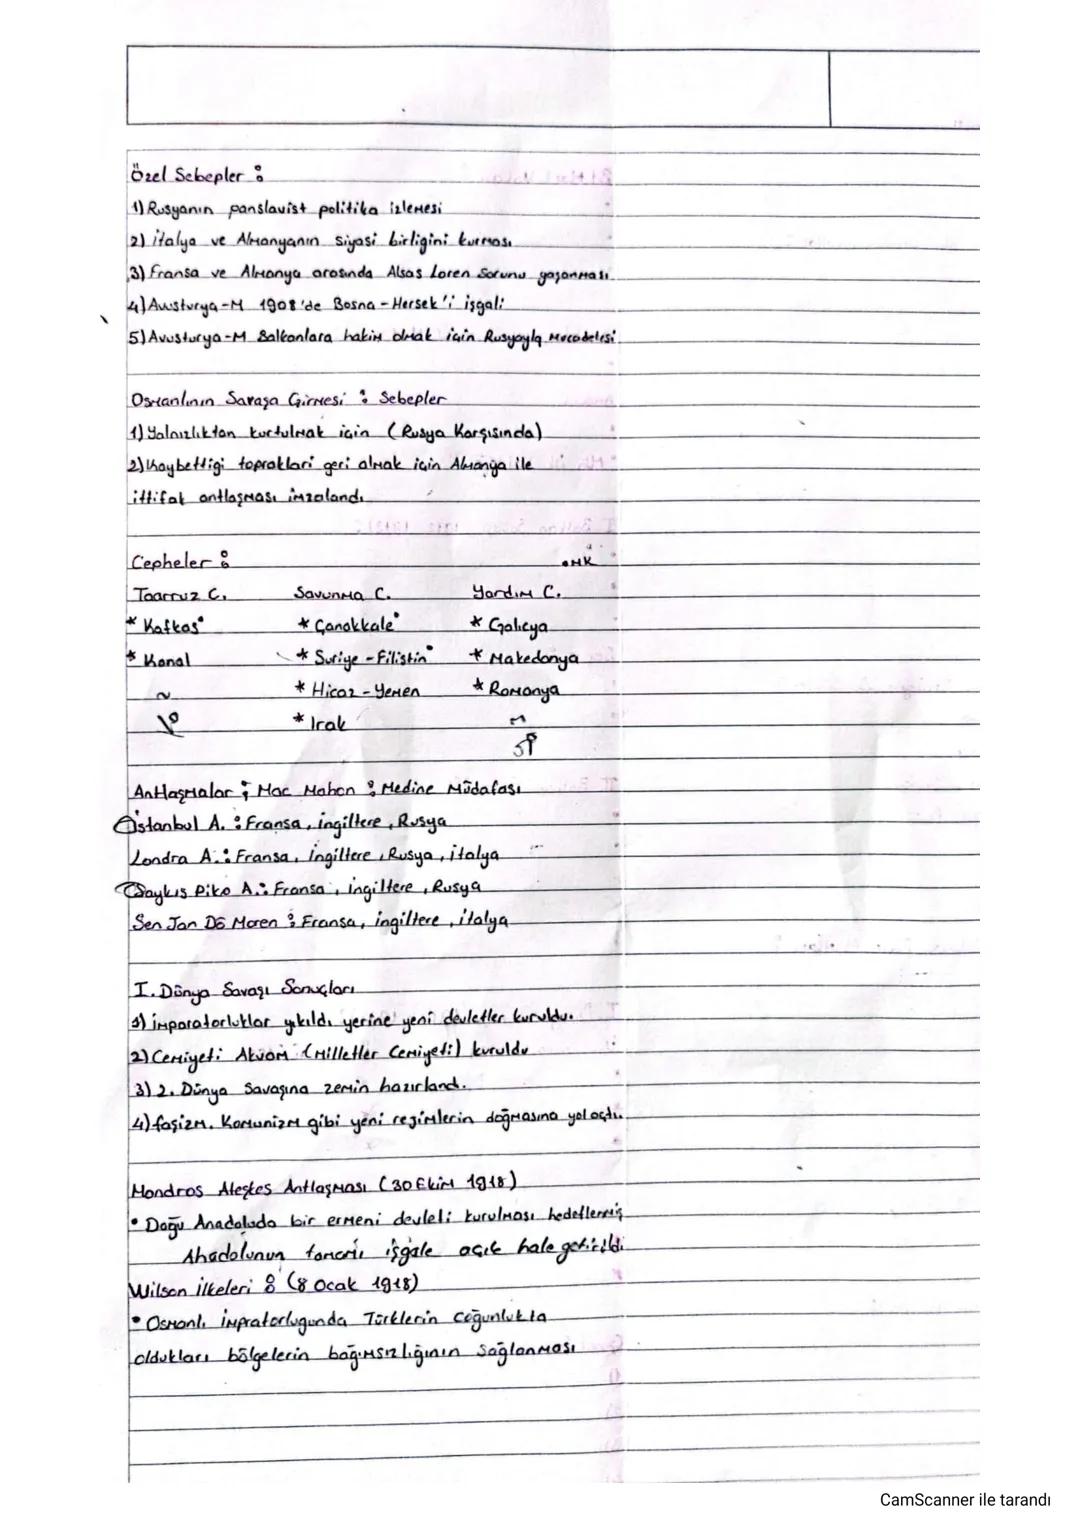 Özel Sebepler :
1) Rusyanın panslavist politika izlemesi
2) italya ve Almanyanın siyasi birligini kurması
3) Fransa ve Almanya arasında Alsas Loren Sorunu yaşanması
4) Avusturya-M 1908'de Bosna-Hersek'i işgali
5) Avusturya-M Balkanlara hakim olmak için Rusyayla Mücadelesi
Osmanlının Savaşa Girmesi : Sebepler
1) Yalnızlıktan kurtulmak için (Rusya Karşısında)
2) Kaybettigi toprakları geri almak için Almanya ile
ittifak antlaşması imzalandı
Cepheler : •MK
Taarruz C. Savunma C. Yardım C.
* Kafkas• * Çanakkale• * Galiçya
* Kanal * Suriye-Filistin• * Makedonya
* Hicaz-Yemen * Romanya
* Irak
Antlaşmalar ; Mac Mahon : Medine Müdafası
istanbul A. : Fransa, ingiltere, Rusya
Londra A. : Fransa, ingiltere, Rusya, italya
Saykıs Piko A. : Fransa, ingiltere, Rusya
Sen Jan Dö Moren : Fransa, ingiltere, italya
I. Dünya Savaşı Sonuçları
1) imparatorluklar yıkıldı yerine yeni devletler kuruldu.
2) Cemiyeti Akvam (Milletler Cemiyeti) kuruldu
3) 2. Dünya Savaşına zemin hazırland.
4) faşizm. Komunizm gibi yeni rejimlerin doğmasına yol açtı.
Mondros Ateşkes Antlaşması (30 Ekim 1918)
• Doğu Anadoluda bir ermeni devleti kurulması hedeflenmiş
Anadolunun tamamı işgale açık hale getirildi
Wilson ilkeleri : (8 Ocak 1918)
• Osmanlı impratorlugunda Türklerin çoğunlukta
oldukları bölgelerin bağımsızlığının Sağlanması
CamScanner ile tarandı